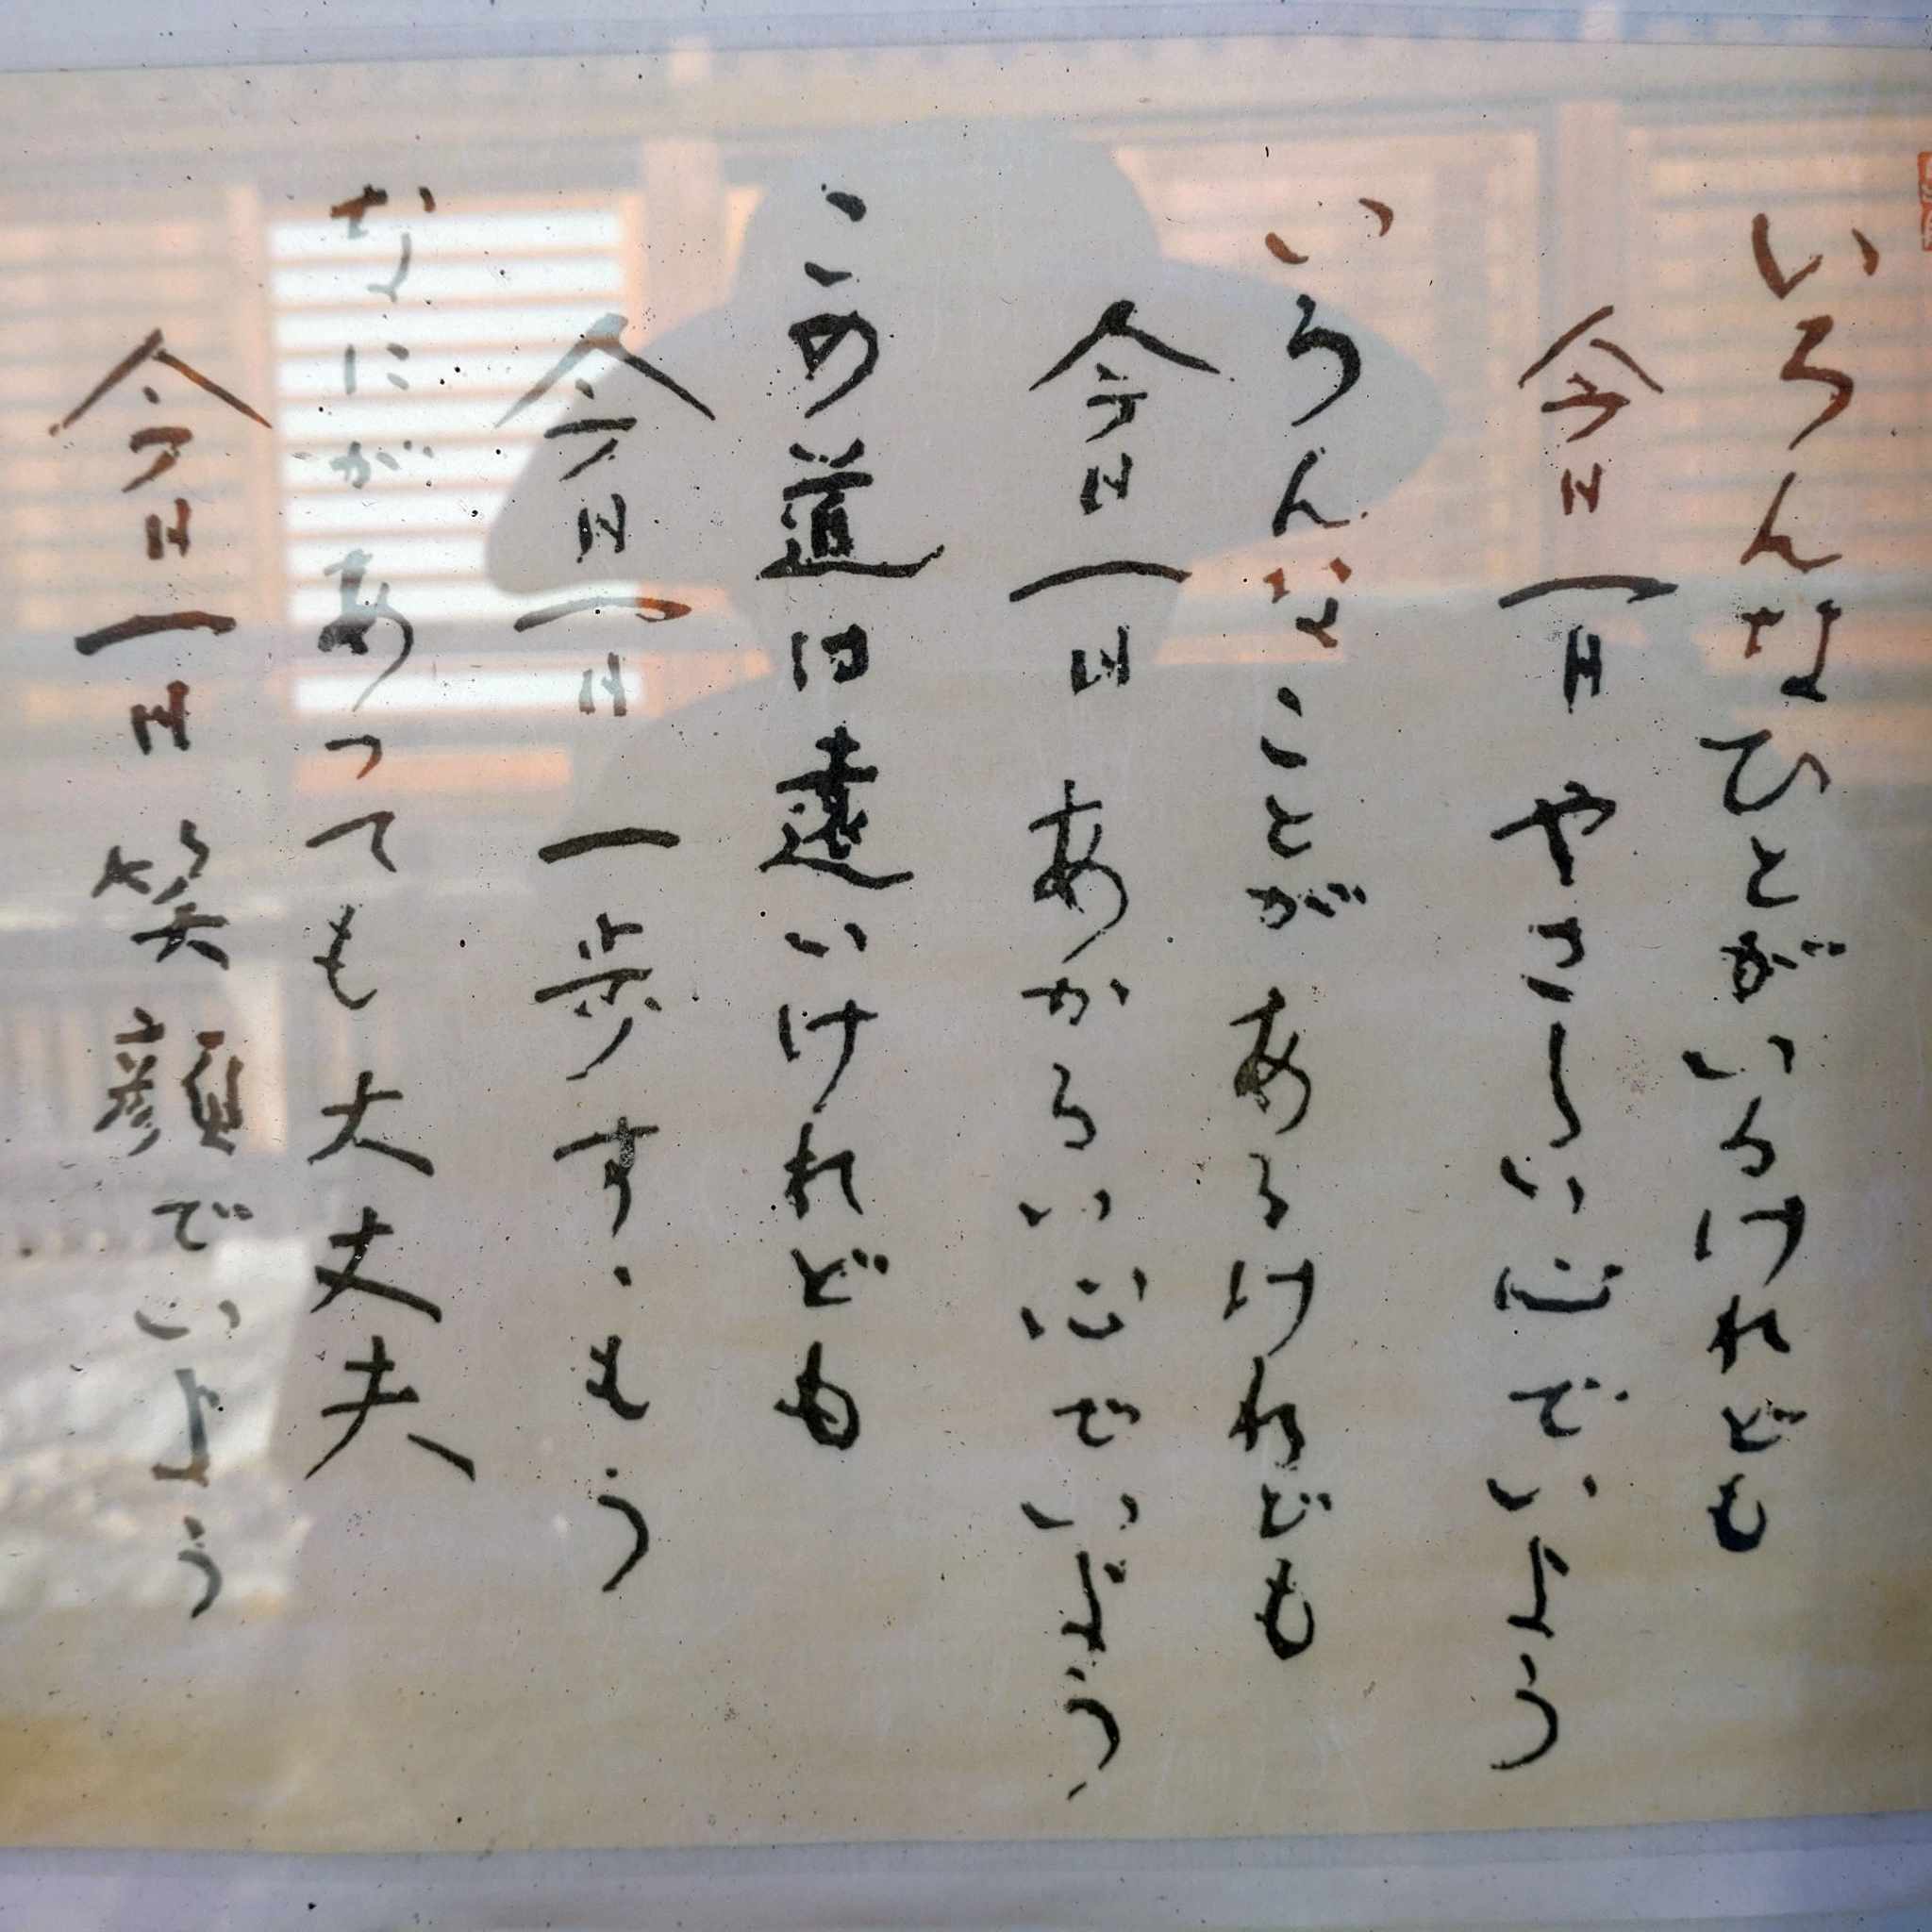 いろんなひとがいるけれども
今日一日 やさしい心でいよう
いろんなことがあるけれども
今日一日 あかるい心でいよう
この道は遠いけれども
今日一日 一歩すゝもう
なにがあっても大丈夫
今日一日 笑顔でいよう